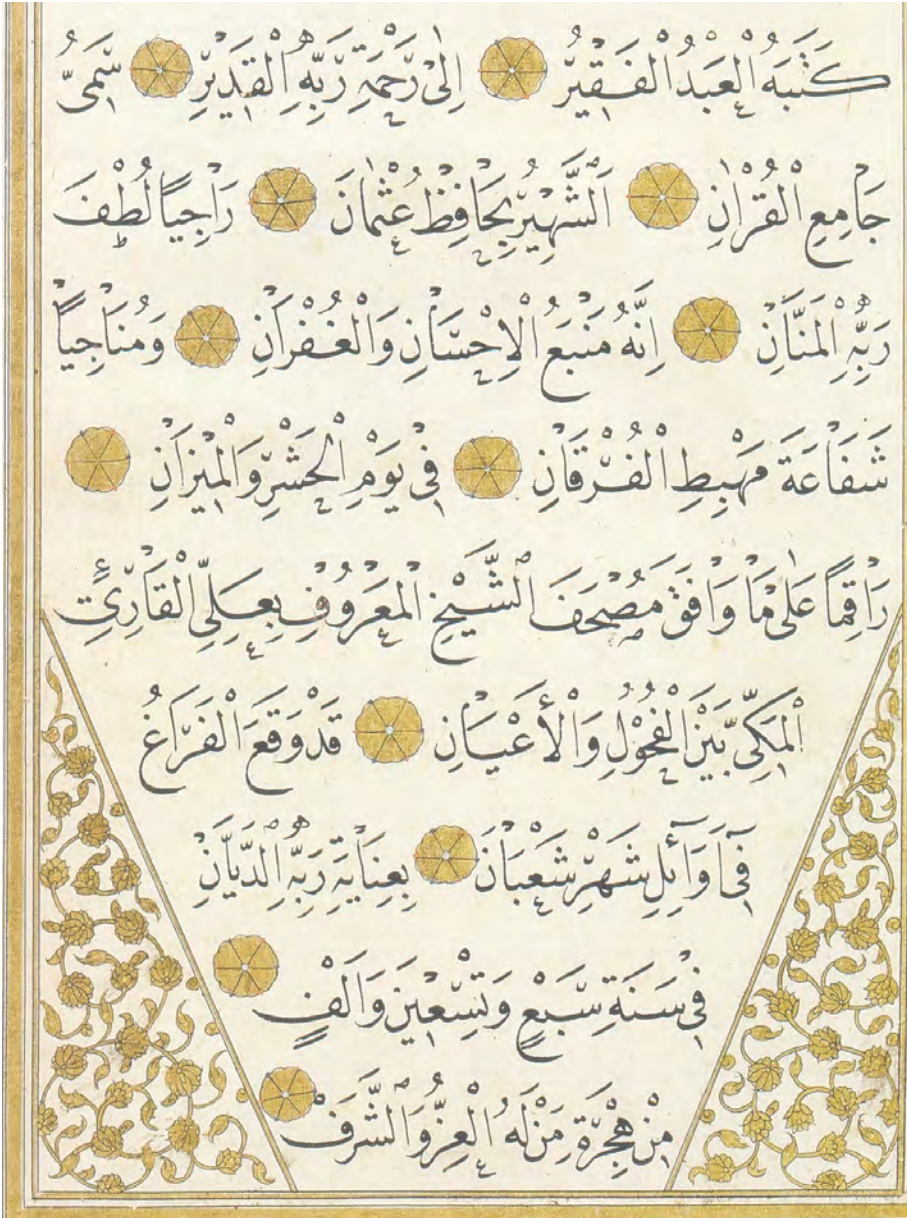 كَتَبَهُ الْعَبْدُ الْفَقِيرُ إِلَى رَحْمَةِ رَبِّهِ الْقَدِيرِ سَمِيُّ
جَامِعِ الْقُرْاٰنِ الشَّهِيرُ بِحَافِظْ عُثْمَانَ رَاجِيًا لُطْفَ
رَبِّهِ الْمَنَّانِ اِنَّهُ مَنْبَعُ الْاِحْسَانِ وَالْغُفْرَانِ وَمُنَاجِيًا
شَفَاعَةَ مَهْبِطِ الْفُرْقَانِ فِي يَوْمِ الْحَشْرِ وَالْمِيزَانِ
رَاقِمًا عَلَى مَا وَافَقَ مُصْحَفَ الشَّيْخِ الْمَعْرُوفِ بِعَلِيِّ الْقَارِئِ
الْمَكِّيِّ بَيْنَ الْفُحُولِ وَالْأَعْيَانِ قَدْ وَقَعَ الْفَرَاغُ
فِي اَوَائِلِ شَهْرِ شَعْبَانَ بِعِنَايَةِ رَبِّهِ الدَّيَّانِ
فِي سَنَةِ سَبْعٍ وَتِسْعِينَ وَاَلْفٍ
مِنْ هِجْرَةِ مَنْ لَهُ الْعِزُّ وَالشَّرَفْ